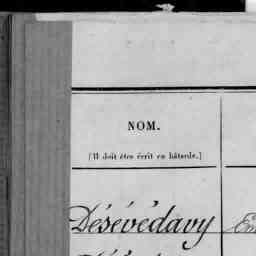 NOM.
[Il doit être écrit en bâtarde.]
Désévédavy